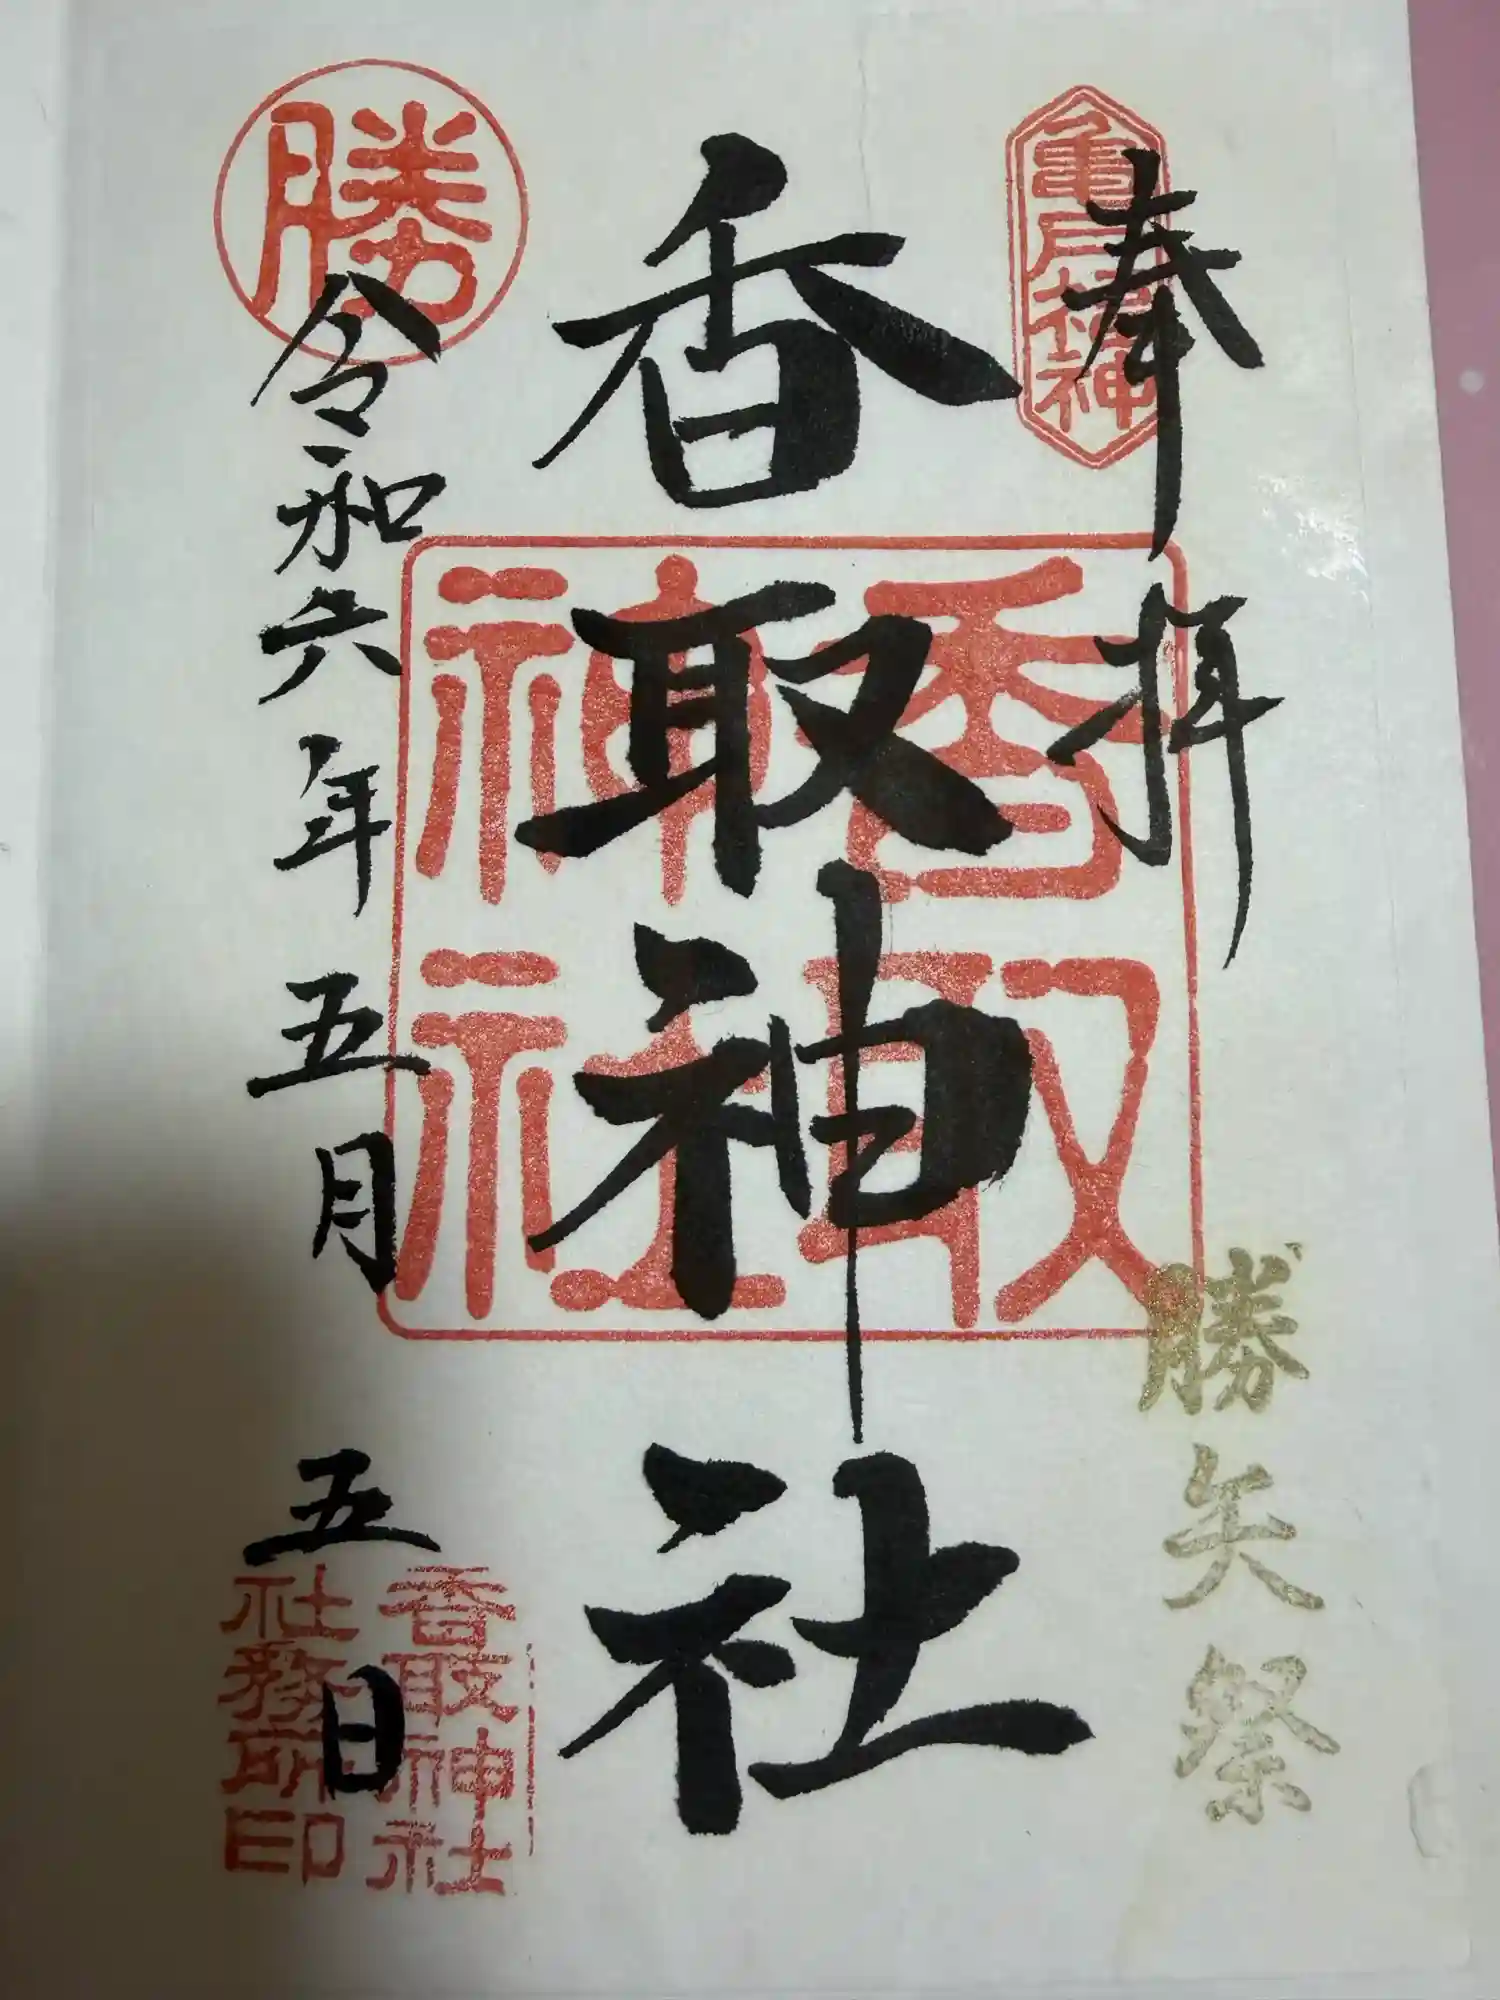 奉拝
亀戸総神
勝矢祭
香取神社
香取
神社
勝
令和六年五月五日
香取神社
社務所印